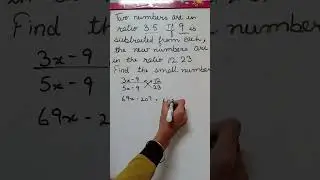 Two numbers are in
ratio 3:5 If 9 is
subtracted from each,
the new numbers are
in the ratio 12:23
Find the small number
3x-9 / 5x-9
3x-9 / 5x-9 12 / 23
69x - 207 =
Find
69x - 20